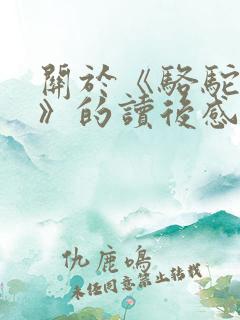 關於《駱駝
》的讀後感
仇鹿鳴
未經同意禁止轉載